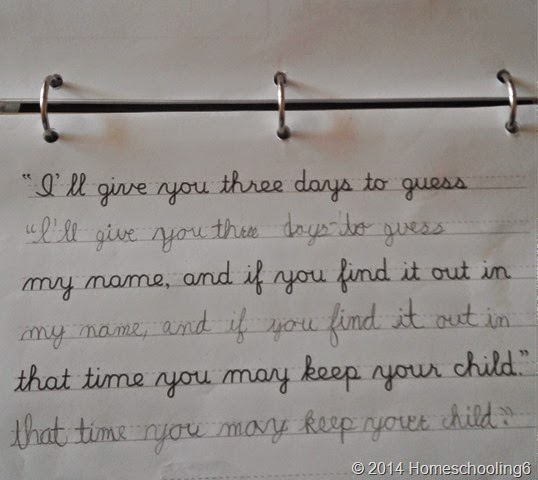 "I'll give you three days to guess
"I'll give you three days to guess
my name, and if you find it out in
my name, and if you find it out in
that time you may keep your child."
that time you may keep your child."
© 2014 Homeschooling6